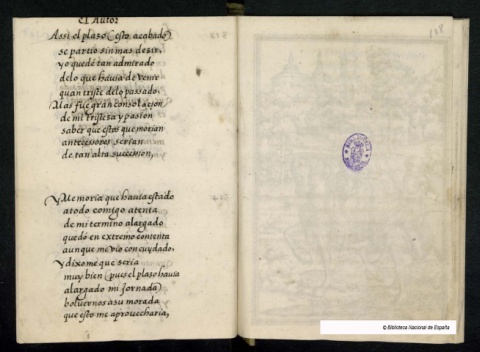 El Autor
Assi el plaso (esto acabado)
se partio sin mas desir,
yo quedé tan admirado
de lo que havia de venir
quan triste de lo passado.
Mas fue gran consolacion
de mi tristesa y passion
saber que estos que morian
antecessores serian
de tan alta succession,
y Memoria que havia estado
a todo comigo atenta
de mi termino alargado
quedó en extremo contenta
aunque me vio con cuydado.
y dixo me que seria
muy bien (pues el plaso havia
alargado mi Jornada)
bolvernos a su morada
que esto me aprovecharia,
118
© Biblioteca Nacional de España